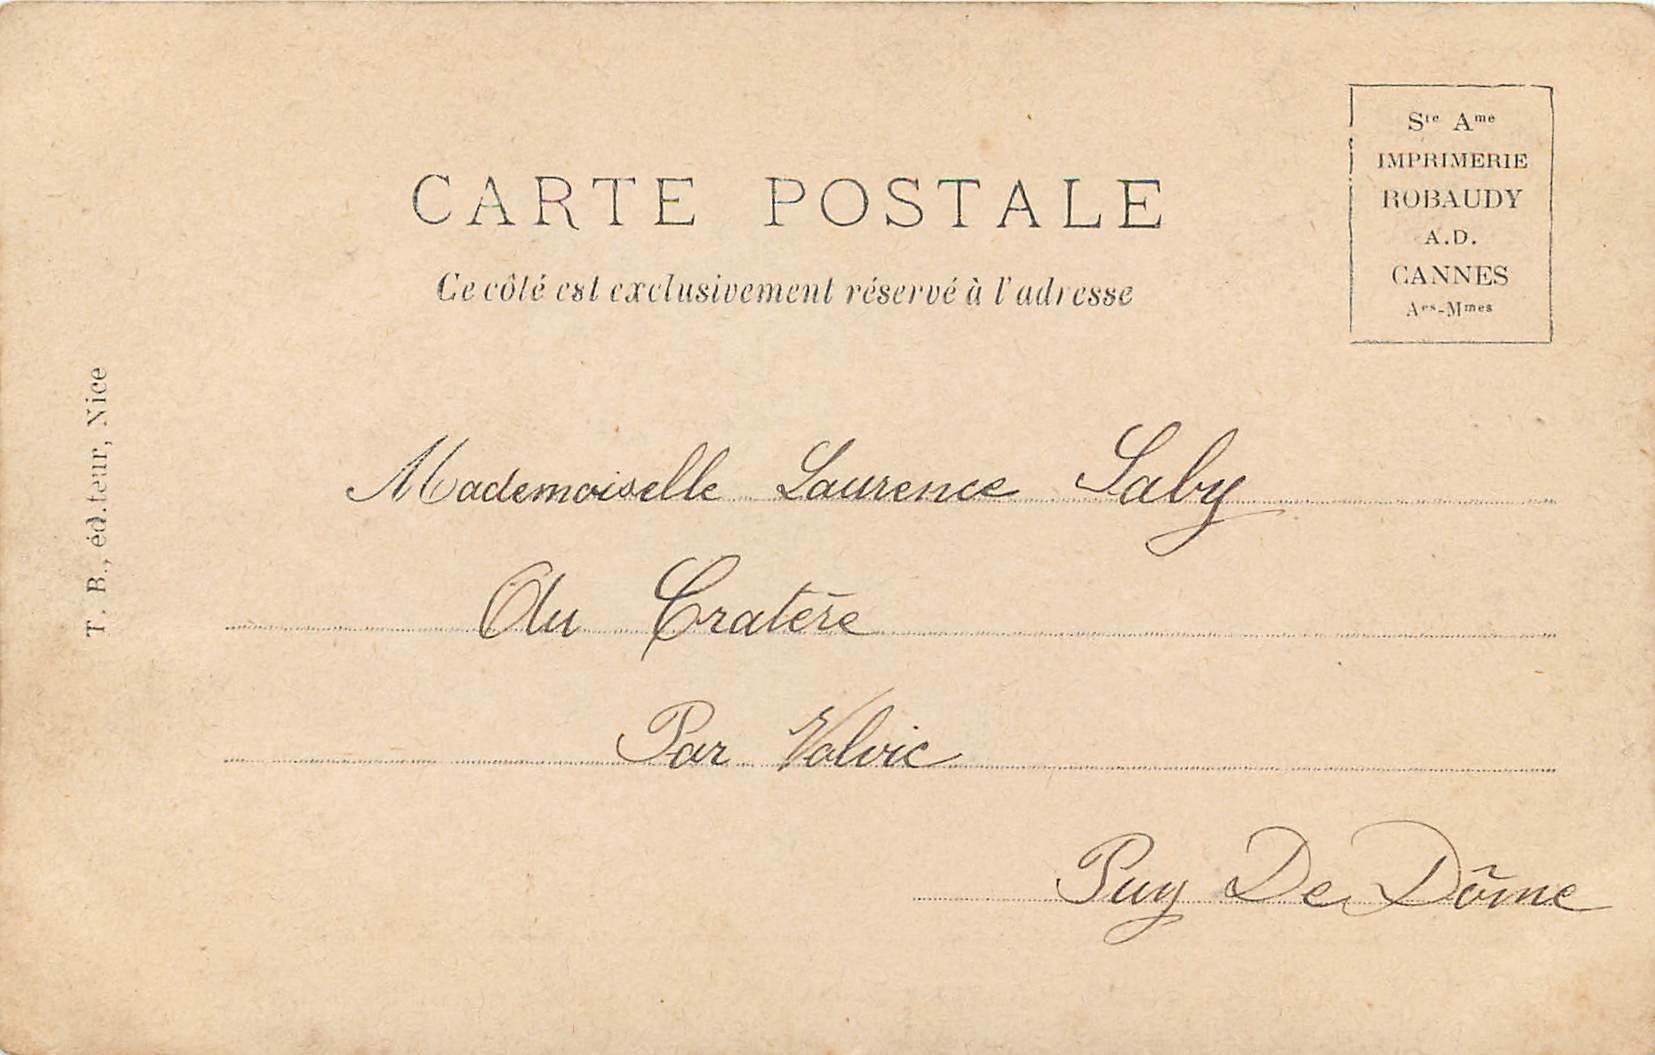 CARTE POSTALE
Ce côté est exclusivement réservé à l'adresse
Ste Ame
IMPRIMERIE
ROBAUDY
A.D.
CANNES
Aes-Mmes
T. B., éditeur, Nice
Mademoiselle Laurence Saby
Au Cratère
Par Volvic
Puy De Dôme